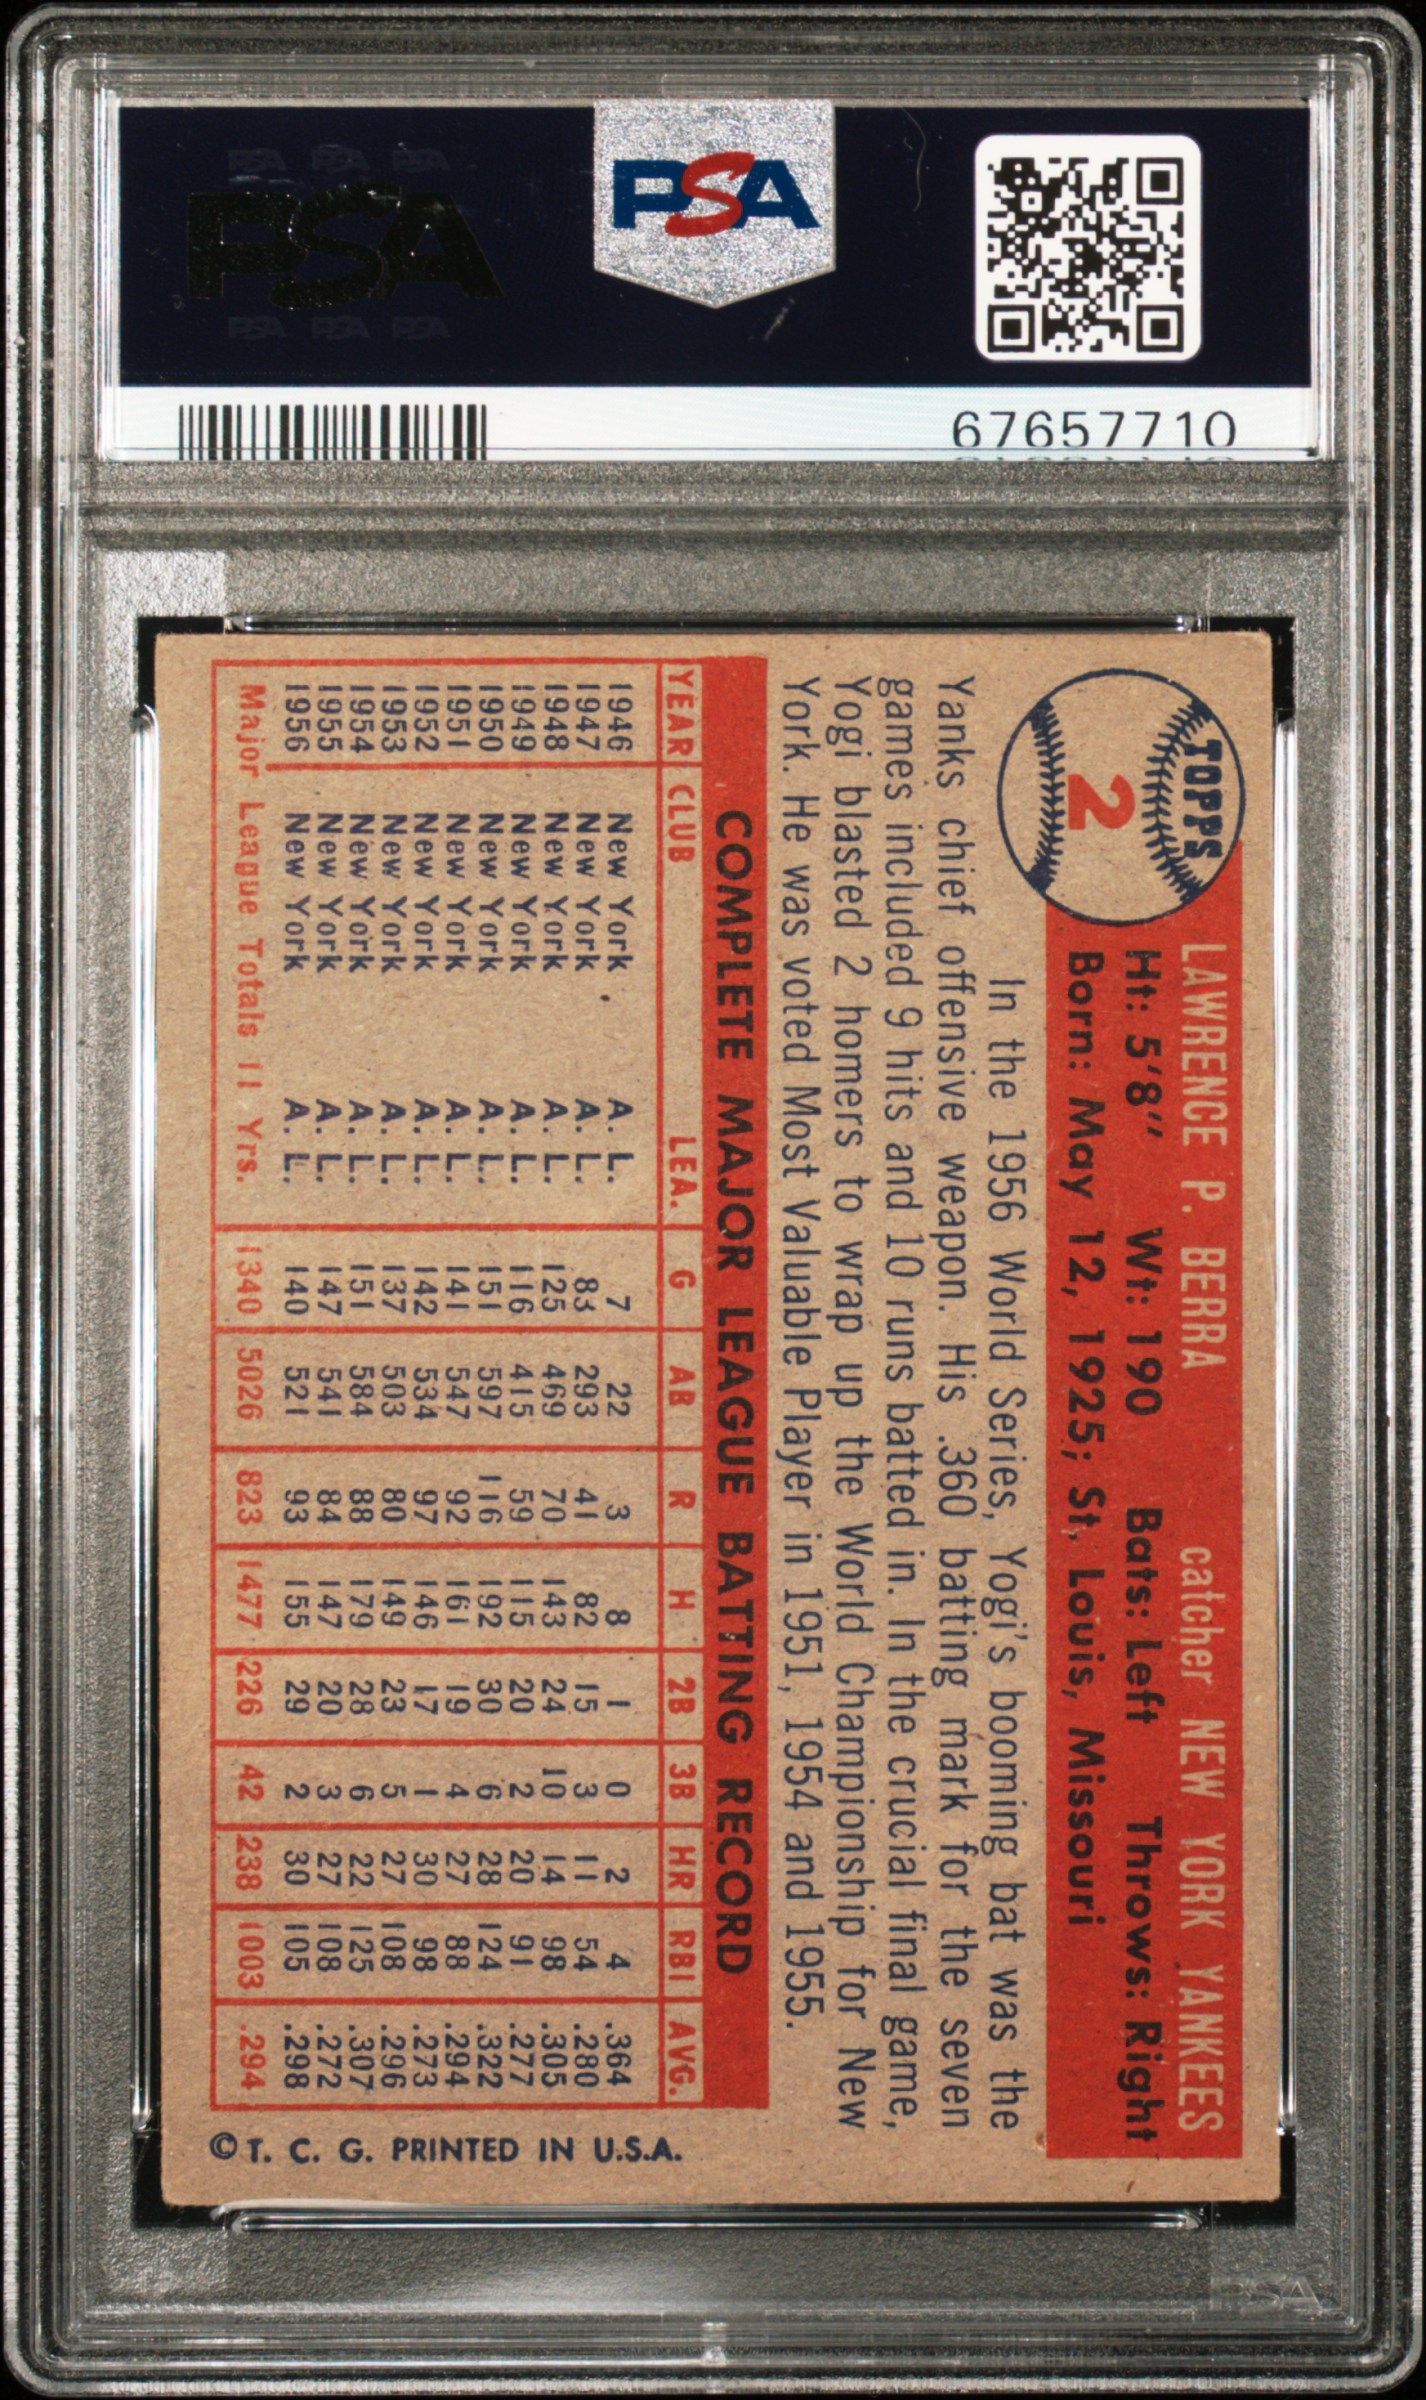 PSA PSA PSA
PSA
PSA PSA PSA
PSA
67657710
TOPPS
2
LAWRENCE P. BERRA catcher NEW YORK YANKEES
Ht: 5'8" Wt: 190 Bats: Left Throws: Right
Born: May 12, 1925; St. Louis, Missouri
In the 1956 World Series, Yogi's booming bat was the
Yanks chief offensive weapon. His .360 batting mark for the seven
games included 9 hits and 10 runs batted in. In the crucial final game,
Yogi blasted 2 homers to wrap up the World Championship for New
York. He was voted Most Valuable Player in 1951, 1954 and 1955.
COMPLETE MAJOR LEAGUE BATTING RECORD
YEAR CLUB LEA. G AB R H 2B 3B HR RBI AVG.
1946 New York A. L. 7 22 3 8 1 0 2 4 .364
1947 New York A. L. 83 293 41 82 15 3 11 54 .280
1948 New York A. L. 125 469 70 143 24 10 14 98 .305
1949 New York A. L. 116 415 59 115 20 2 20 91 .277
1950 New York A. L. 151 597 116 192 30 6 28 124 .322
1951 New York A. L. 141 547 92 161 19 4 27 88 .294
1952 New York A. L. 142 534 97 146 17 1 30 98 .273
1953 New York A. L. 137 503 80 149 23 5 27 108 .296
1954 New York A. L. 151 584 88 179 28 6 22 125 .307
1955 New York A. L. 147 541 84 147 20 3 27 108 .272
1956 New York A. L. 140 521 93 155 29 2 30 105 .298
Major League Totals 11 Yrs. 1340 5026 823 1477 226 42 238 1003 .294
© T. C. G. PRINTED IN U.S.A.
PSA